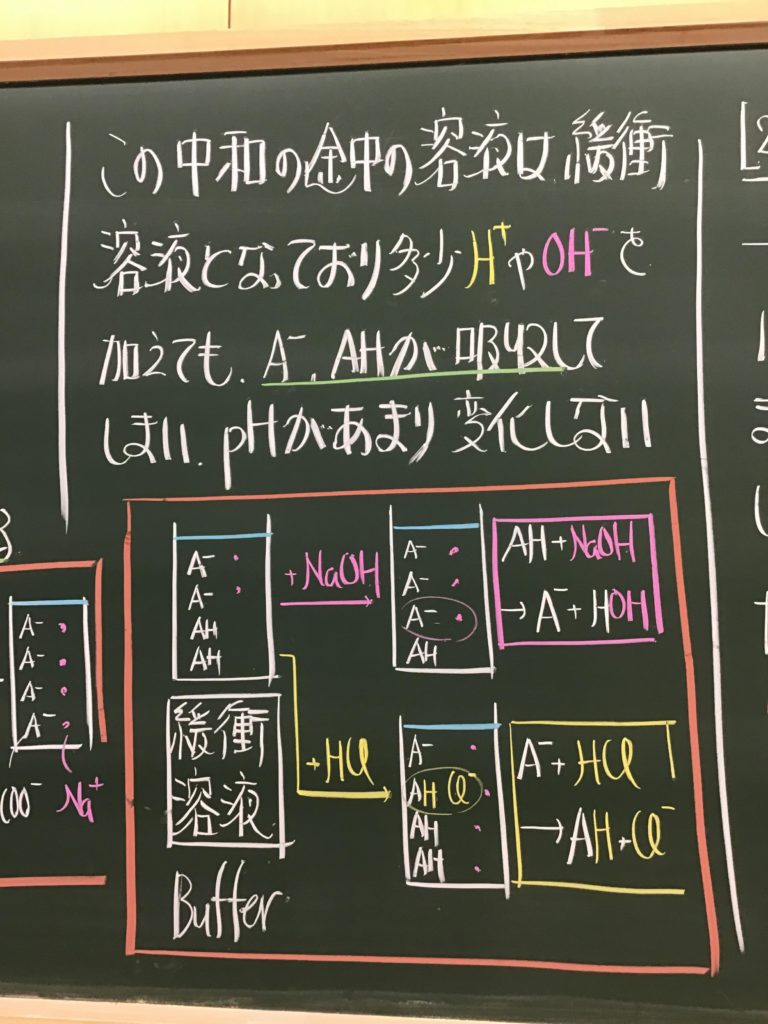 この中和の途中の溶液は緩衝
溶液となっており多少H⁺やOH⁻を
加えても、A⁻、AHが吸収して
しまい、pHがあまり変化しない
A⁻
A⁻
AH
AH
+NaOH
A⁻
A⁻
A⁻
AH
AH+NaOH
→ A⁻+HOH
緩衝
溶液
Buffer
+HCl
A⁻
AH Cl⁻
AH
AH
A⁻+HCl
→ AH+Cl⁻
A⁻
A⁻
A⁻
A⁻
COO⁻ Na⁺